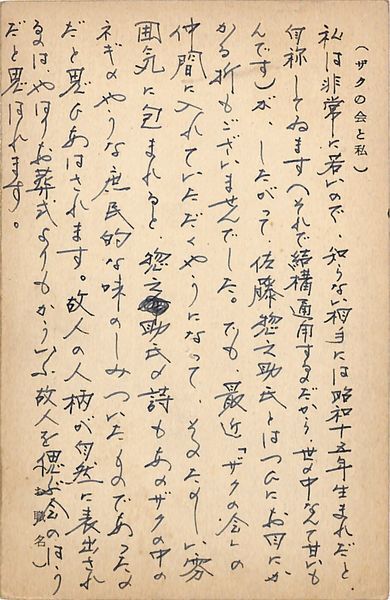 （ザクの会と私）
私は非常に若いので、知らない相手には昭和十五年生まれだと
自称してゐます（それで結構通用するだから、世の中なんて甘いも
んです）が、したがって、佐藤惣之助氏とはつひにお目にか
かる折もございませんでした。でも、最近「ザクの会」の
仲間に入れていただくやうになって、そのたのしい雰
囲気に包まれると、惣之助氏の詩もあのザクの中の
ネギのやうな庶民的な味のしみついたものであったの
だと思ひあはされます。故人の人柄が自然に表出され
るは、やはりお葬式よりもかういふ故人を偲ぶ会のはう
だと思はれます。
職名）